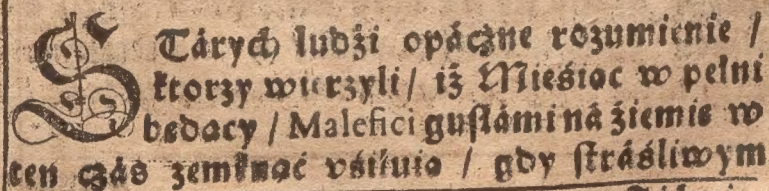 STárych ludźi opáczne rozumienie /
ktorzy wierzyli / iż Mieśiąc w pełni
będący / Malefici gusłámi ná źiemię w
ten czás zemknąć vśiłuią / gdy stráśliwym